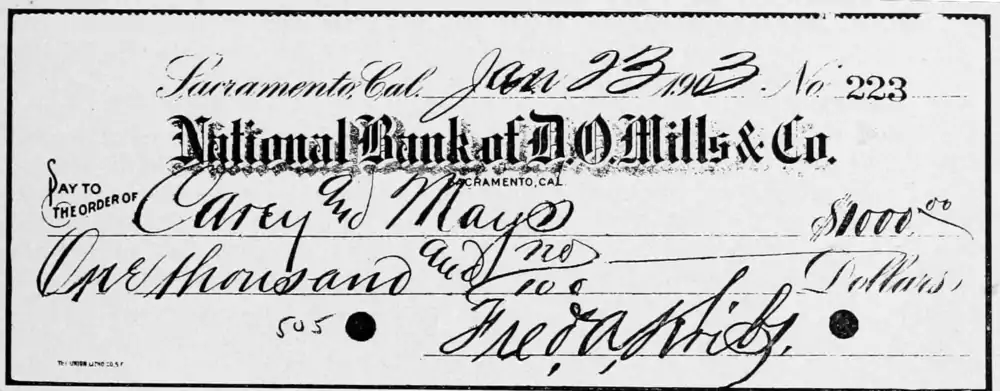 Sacramento, Cal. Jan 23 1903 No. 223
National Bank of D.O. Mills & Co.
SACRAMENTO, CAL
PAY TO THE ORDER OF Carey and Mays $1000.00
One thousand and no/100 Dollars
505
Fred A. Kribs.
THE UNION LITHO CO. S.F.